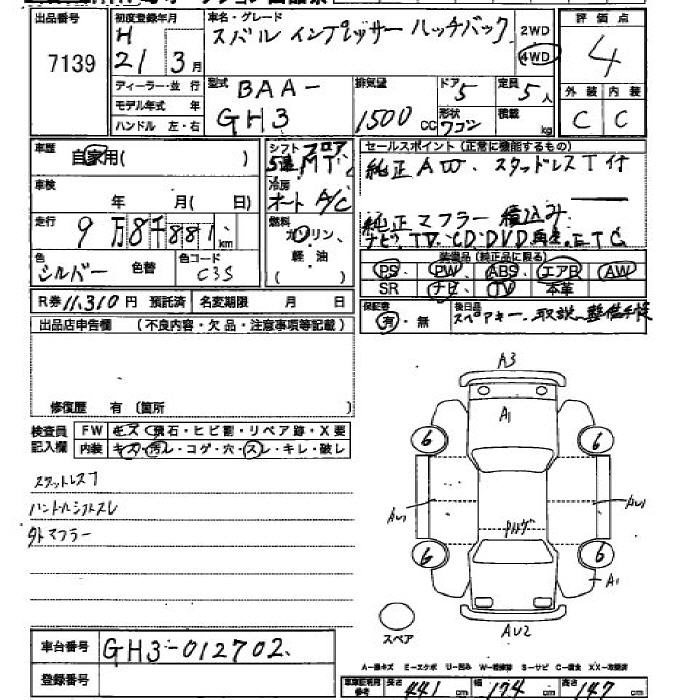 出品番号
7139
初度登録年月
H 21 3月
ディーラー・並行
モデル年式 年
ハンドル 左・右
車名・グレード
スバル インプレッサー ハッチバック
2WD
4WD
評価点
4
外装 内装
C C
型式
BAA-
GH3
排気量
1500 CC
ドア 5
形状
ワゴン
定員 5人
積載 kg
車歴
自家用( )
車検
年 月( 日)
走行
9万8千881 km
色
シルバー 色替
色コード
C3S
シフト フロア
5速 MT
冷房
オート A/C
燃料
ガソリン、
軽油
( )
セールスポイント(正常に機能するもの)
純正AW、スタッドレスT付
純正マフラー積込み
ナビ、TV、CD、DVD再生、ETC
装備品(純正品に限る)
PS PW ABS エアB AW
SR ナビ TV 本革
R券 11,310円 預託済 名変期限 月 日
保証書
有・無
後日品
スペアキー、取説、整備手帳
出品店申告欄 (不良内容・欠品・注意事項等記載)
修復歴 有(箇所 )
検査員
記入欄
FW キズ・飛石・ヒビ割・リペア跡・X要
内装 キズ・汚レ・コゲ・穴・スレ・キレ・破レ
スタットレスT
ハンドルシフトスレ
外トマフラー
A3
A1
6
6
AU1
AU1
6
6
A1
AU2
スペア
車台番号 GH3-012702
登録番号
A-線キズ E-エクボ U-凹み W-補修跡 S-サビ C-腐食 XX-交換済
車庫証明用
参考
長さ 441 cm 幅 174 cm 高さ 147 cm